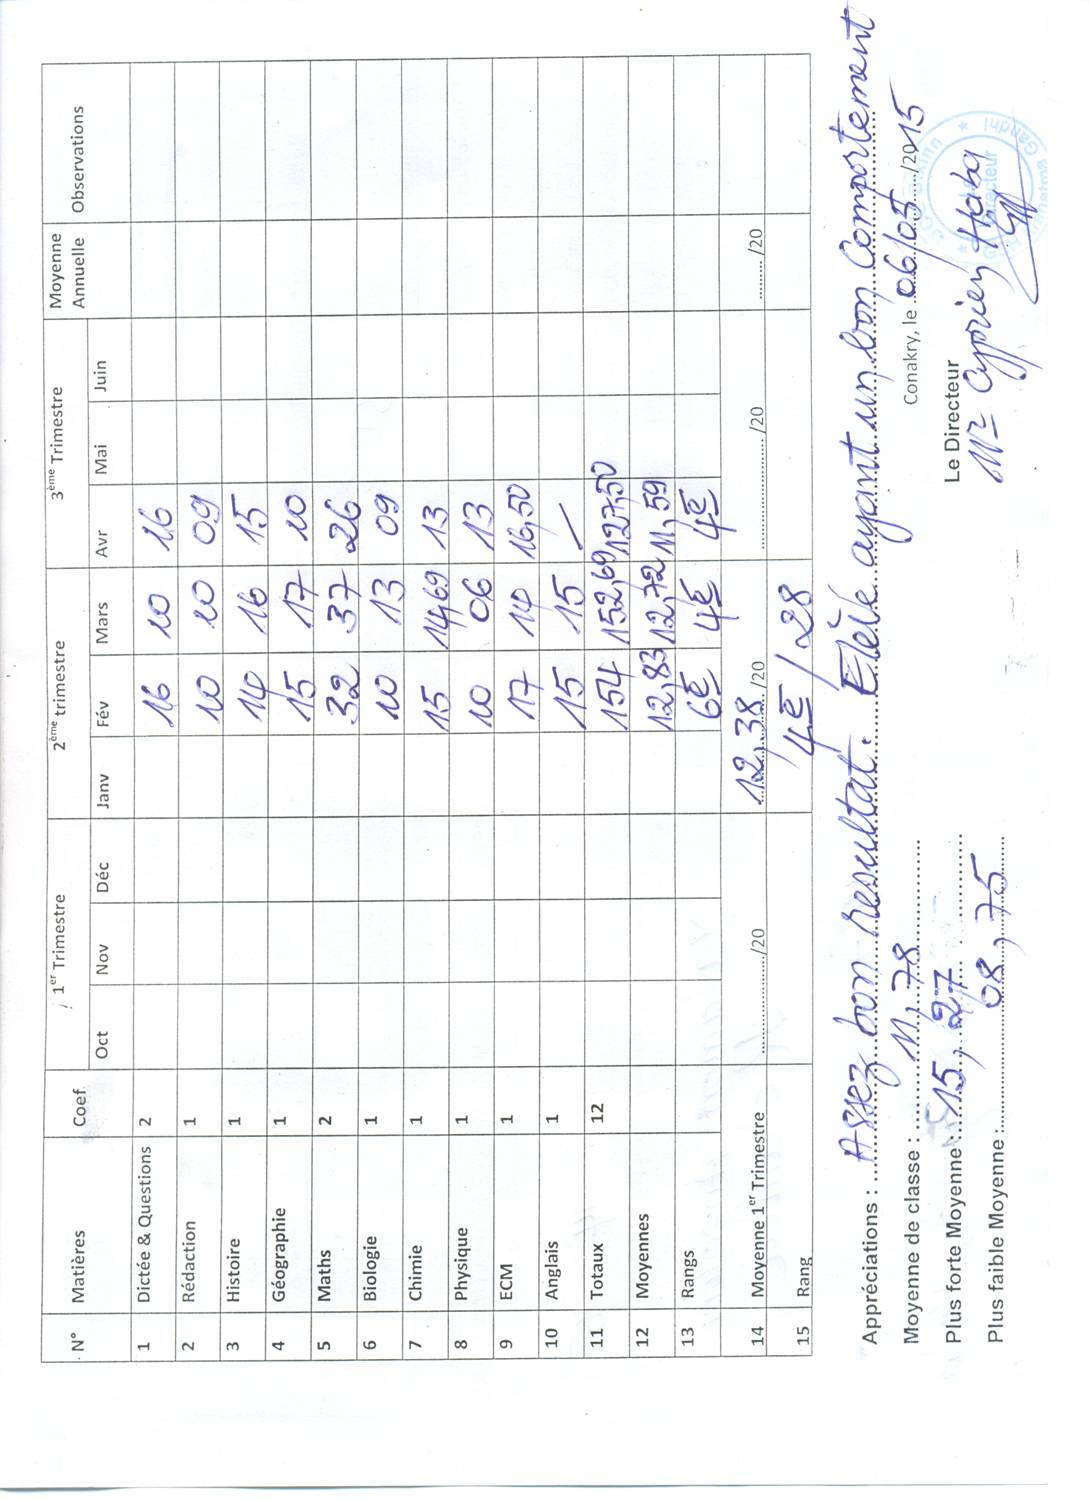 N° Matières Coef. 1er Trimestre 2ème trimestre 3ème Trimestre Moyenne Annuelle Observations
Oct Nov Déc Janv Fév Mars Avr Mai Juin
1 Dictée & Questions 2 16 10 16
2 Rédaction 1 10 10 09
3 Histoire 1 14 16 15
4 Géographie 1 15 17 10
5 Maths 2 32 37 26
6 Biologie 1 10 13 09
7 Chimie 1 15 14,69 13
8 Physique 1 10 06 13
9 ECM 1 17 14 16,50
10 Anglais 1 15 15 /
11 Totaux 12 154 152,69 127,50
12 Moyennes 12,83 12,72 11,59
13 Rangs 6e 4e 4e
14 Moyenne 1er Trimestre ............/20 12,38 /20 ............/20 ........./20
15 Rang 4e / 28
Appréciations : Assez bon resultat. Elève ayant un bon Comportement
Moyenne de classe : 11,78
Conakry, le 06/05/2015
Plus forte Moyenne : 15,27
Le Directeur
Plus faible Moyenne : 08,75
Mr Cyprien Haba